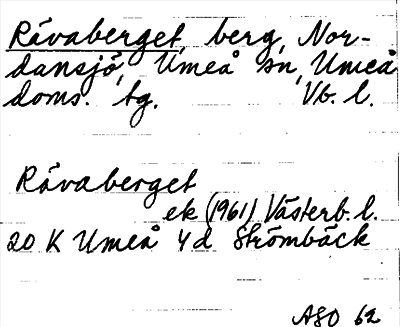 Råvaberget, berg, Nor-
dansjö, Umeå sn, Umeå
doms. tg. Vb. l.
Råvaberget
ek (1961) Västerb. l.
20 K Umeå 4 d Strömbäck
ASO 62